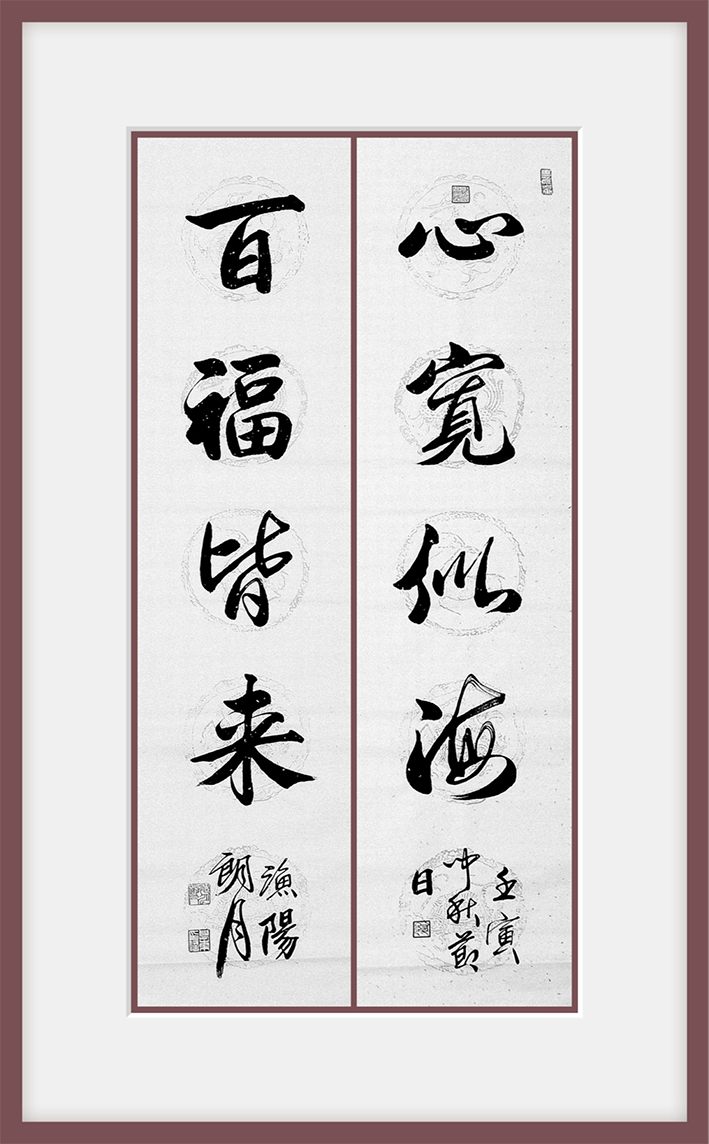 心寬似海
壬寅
中秋節
日
百福皆来
漁陽
朗月